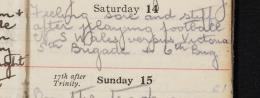 Saturday 14
Feeling sore and stiff
after playing football
N S Wales versus Victoria
5th Brigade v 6th Brig
17th after
Trinity.
Sunday 15